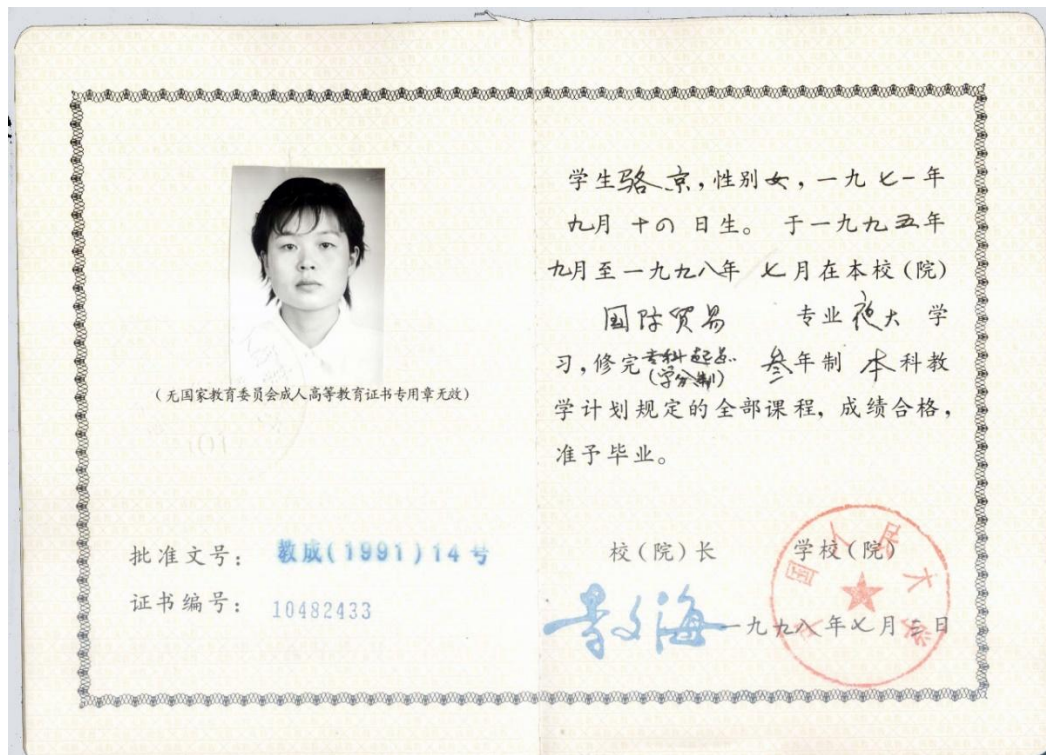 (无国家教育委员会成人高等教育证书专用章无效)
批准文号: 教成(1991)14号
证书编号: 10482433
学生骆京,性别女,一九七一年
九月 十四 日生。 于一九九五年
九月至一九九八年 七月在本校(院)
国际贸易 专业夜大 学
习,修完专科起点 叁年制 本科教
(学分制)
学计划规定的全部课程, 成绩合格,
准予毕业。
校(院)长 学校(院)
一九九八年七月 日
中国人民大学